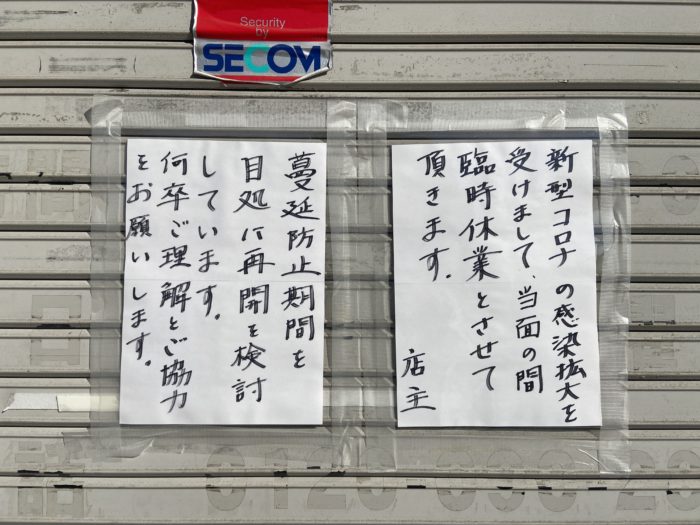 Security
by
SECOM
新型コロナの感染拡大を
受けまして、当面の間
臨時休業とさせて
頂きます。
店主
蔓延防止期間を
目処に再開を検討
しています。
何卒ご理解とご協力
をお願いします。